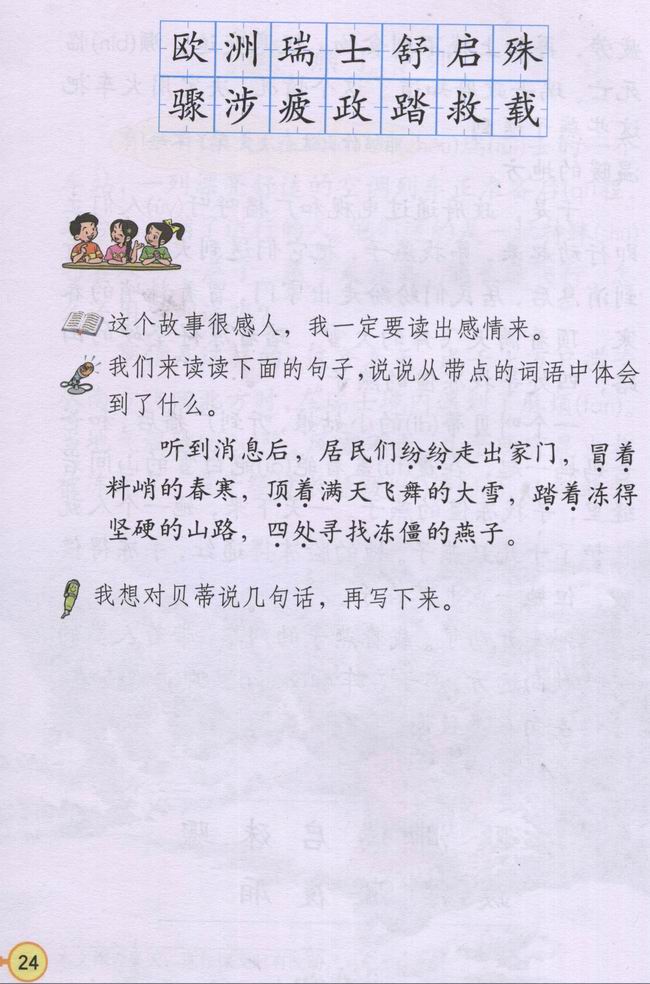 欧洲瑞士舒启殊
骤涉疲政踏救载
这个故事很感人，我一定要读出感情来。
我们来读读下面的句子，说说从带点的词语中体会
到了什么。
听到消息后，居民们纷纷走出家门，冒着
料峭的春寒，顶着满天飞舞的大雪，踏着冻得
坚硬的山路，四处寻找冻僵的燕子。
我想对贝蒂说几句话，再写下来。
24